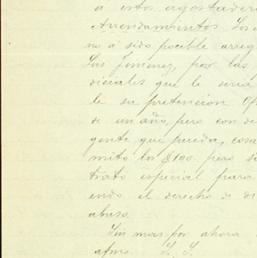 a estos agostader
Arrendamientos. Los
no á sido posible arreg
Luis Jimenez, por las
diciales que le seria
le su pretencion
de un año, pero con de
gente que pueda, com
mito los $100. pero de
trato especial para
endo el derecho de di
abuso.
Sin mas por ahora
afmo. S. S.